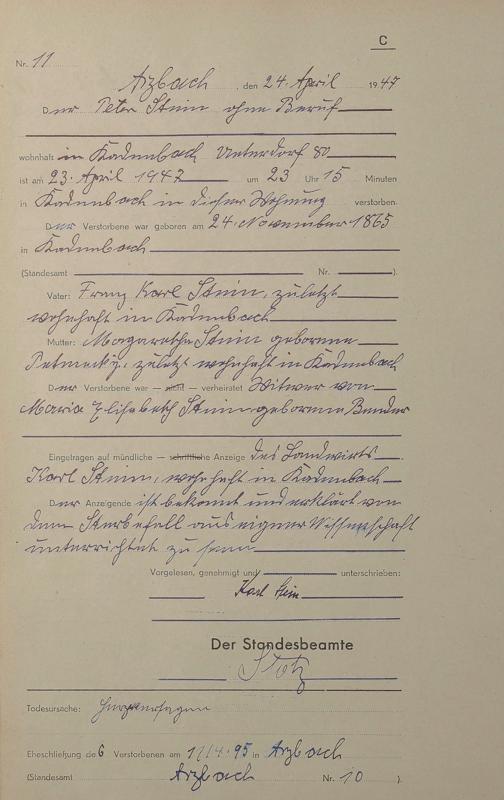 C
Nr. 11
Arzbach, den 24. April 1947
Der Peter Stein ohne Beruf
wohnhaft in Kadenbach Unterdorf 80
ist am 23. April 1947 um 23 Uhr 15 Minuten
in Kadenbach in dieser Wohnung verstorben.
Der Verstorbene war geboren am 24. November 1865
in Kadenbach
(Standesamt Nr. ).
Vater: Franz Karl Stein, zuletzt
wohnhaft in Kadenbach
Mutter: Margarethe Stein geborene
zuletzt wohnhaft in Kadenbach
Der Verstorbene war — nicht — verheiratet Witwer von
Maria Elisabeth Stein geborene Bender
Eingetragen auf mündliche — schriftliche Anzeige des Landwirts
Karl Stein, wohnhaft in Kadenbach
Der Anzeigende ist bekannt und erklärt von
dem Sterbefall aus eigener Wissenschaft
unterrichtet zu sein
Vorgelesen, genehmigt und unterschrieben:
Karl Stein
Der Standesbeamte
Stotz
Todesursache: Herzversagen
Eheschließung des Verstorbenen am 95 in Arzbach
(Standesamt Arzbach Nr. 10 ).